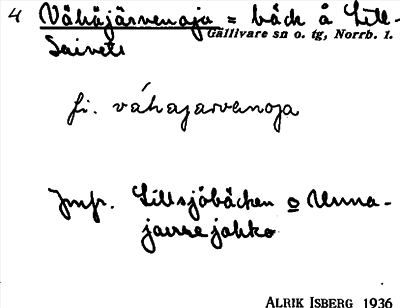 4 Vähäjärvenoja = bäck å Lill-
Gällivare sn o. tg, Norrb. l.
Saivets
fi. váhajarvanoja
Jmfr. Lillsjöbäcken o Unna-
jaurejokko
ALRIK ISBERG 1936